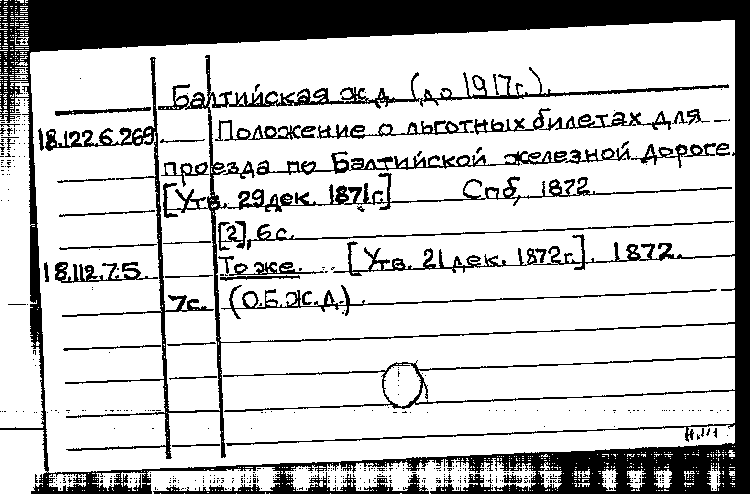 Балтийская ж.д. (до 1917г.).
18.122.6.269. Положение о льготных билетах для
проезда по Балтийской железной дороге.
[Утв. 29 дек. 1871г.] Спб, 1872.
[2], 6 с.
18.112.7.5. То же. .. [Утв. 21 дек. 1872г.]. 1872.
7с. (О.Б.Ж.Д.).